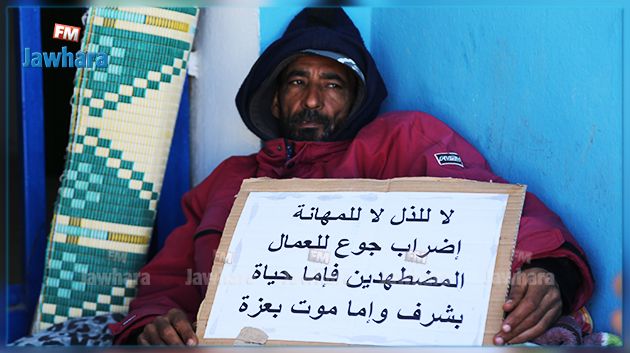 FM
Jawhara
لا للذل لا للمهانة
إضراب جوع للعمال
المضطهدين فإما حياة
بشرف وإما موت بعزة